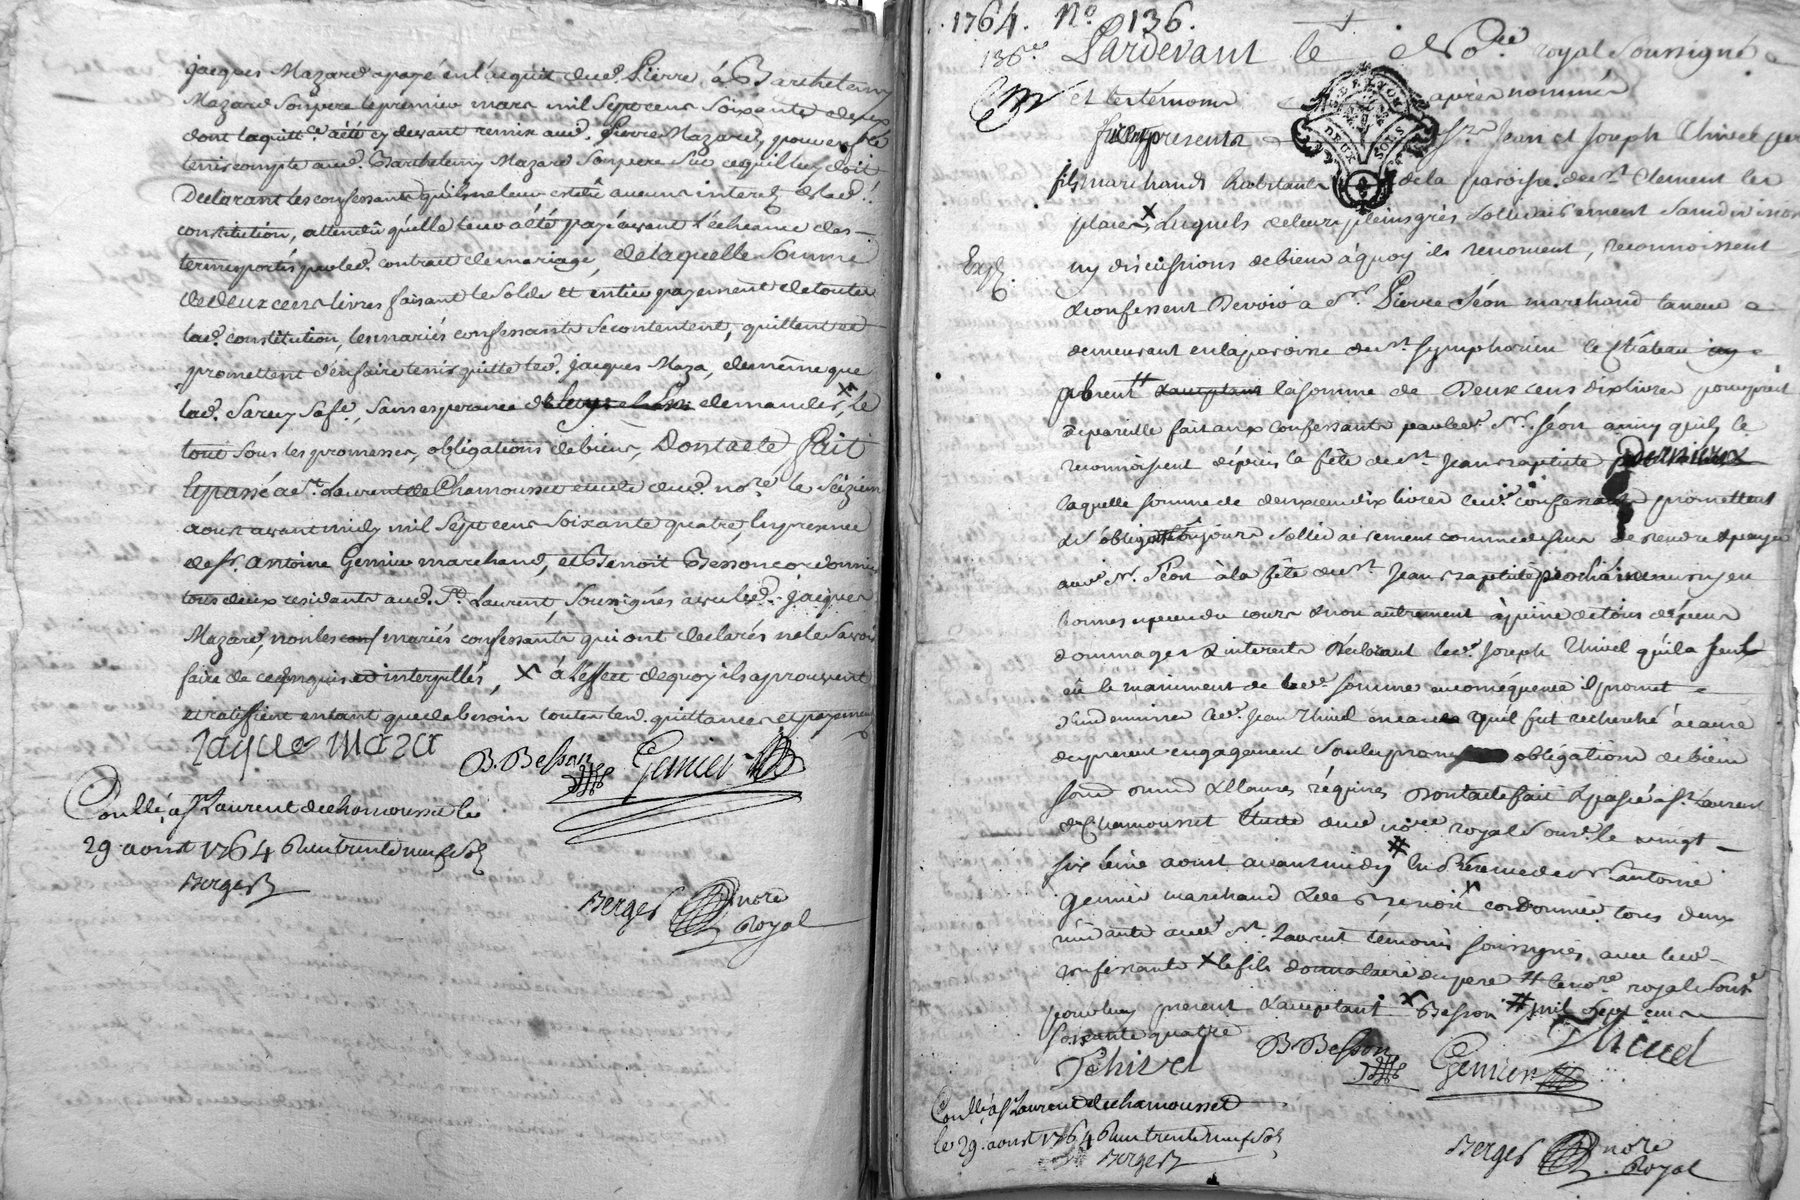 jacques Mazard apayé enl'acquit dud. Pierre, à Barthelemy
Mazard sonpere le premier mars mil sept cens soixante deux
dont laquitt.ce aété cy devant remis aud. Pierre Mazard, pour en etre
tenir compte aud. Barthelemy Mazard sonpere sur cequil luy doit
Declarant les confessants qu'ils ne leur est dû aucuns interets de lad.
constitution, attendû qu'elle leur a été payé avant l'écheance des
termes portés par led. contrat de mariage, de laquelle somme
de deux cens livres faisant le solde et entier payement de toute
lad. constitution, les mariés confessants se contentent, quittent et
promettent d'en faire tenir quitte led. jacques Maza, de même que
lad. Sarcy sa fe., sans esperance de demander, x le
tout sous les promesses, obligations de biens, Dont acte fait
& passé a St. Laurent de Chamousset etude dud. no.re le seizieme
aoust avant midy mil sept cens soixante quatre, En presence
de sr. antoine Genier marchand, et Benoit Besson cordonnier
tous deux residants aud. St. Laurent, soussignés avec led. jacques
Mazard, non les mariés confessants qui ont declarés ne le savoir
faire de ce enquis et interpellés, x à l'effet dequoy ils aprouvent
et ratiffient entant que de besoin toutes led. quittances et payements
Jaque maza
B. Besson Genier
Conllé, a st Laurent de chamousset le
29. aoust 1764 Reçu trente neuf sols
Berger
Berger nore
Royal
1764. No. 136.
136e Pardevant le No.re royal soussigné
et les témoins après nommés
DEUX SOLS
furent presents Srs. Jean et Joseph Thivel pere
fils marchands habitants de la paroisse de St. Clement les
places x lesquels de leurs pleins grés sollidairement sans division
ny discussions de biens à quoy ils renoncent, reconnoissent
Exp.
& confessent Devoir à Sr. Pierre Séon marchand taneur
demeurant en la paroisse de St. Symphorien le Chateau
present # la somme de Deux cens dix livres pour prêt
de pareille fait aux confessants par led. Sr. Séon ainsy qu'ils le
reconnoissent dépuis la fête de St. Jean Baptiste derniere
laquelle somme de deux cens dix livres lesd. confessants promettent
& s'obligent toujours sollidairement comme dessus de rendre & payer
aud. Sr. Séon à la fête de St. Jean Baptiste prochaine en
bonnes especes du cours & non autrement à peine de tous dépens
dommages & interets Déclarant led. Joseph Thivel qu'il a seul
eû le maniment de lad. somme en conséquence il promet
d'indemniser led. Jean Thivel en cas qu'il fut recherché à cause
du present engagement sous les promesses obligations de biens
soumissions & clauses réquises Dont acte fait & passé à St. Laurent
de Chamousset Etude dud. no.re royal sous.é le vingt
six ième aoust avant midy # En Presence de Sr. antoine
Genier marchand & de Benoit x cordonnier tous deux
résidants aud. St. Laurent témoins soussignés avec lesd.
confessants x le fils donnataire du pere # le no.re royal sous.é
pour luy present & acceptant x Besson # mil sept cens
soixante quatre
Thivel
B. Besson Genier
Thivel
Conllé, a st Laurent de chamousset
le 29. aoust 1764 Reçu trente neuf sols
Berger
Berger nore
Royal